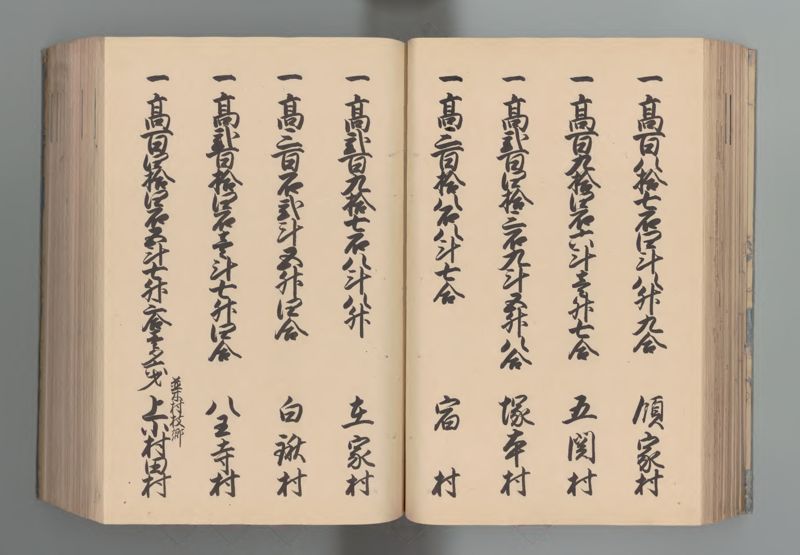 一高百八拾七石四斗八升九合 領家村
一高百九拾四石六斗壱升七合 五関村
一高弐百四拾二石九斗五升八合 塚本村
一高三百拾八石八斗七合 宿村
一高弐百九拾七石八斗八升 在家村
一高三百石弐斗五升四合 白鍬村
一高弐百拾四石壱斗七升四合 八王寺村
一高百四拾四石五斗七升 並木村枝郷 上小村田村